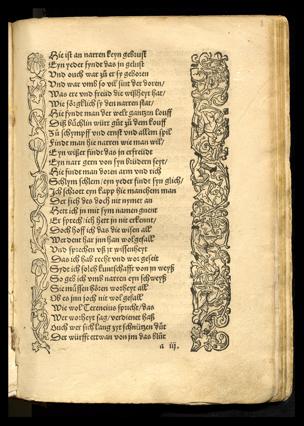 Hie ist an narren keyn gebrust
Eyn yeder fyndt das jn gelust
Vnd ouch war zů er sy geboren
Vnd war vmb so vil sint der doren/
Was ere vnd freüd die wißheyt hat/
Wie sörgklich sy der narren stat/
Hie fyndt man der welt gantzen louff
Diß büchlin würt gůt zů dem kouff
Zů schympff vnd ernst vnd allem spil
Findt man hie narren wie man wil/
Eyn wißer findt das jn erfreüdt
Eyn narr gern von syn brüdern seyt/
Hie findt man doren arm vnd rich
Schlym schlem/ eyn yeder findt syn glich/
Ich schrot eyn kapp hie manchem man
Der sich des doch nit nymet an
Hett ich jn mit sym namen gnent
Er sprech/ ich hett jn nit erkent/
Doch hoff ich das die wisen all
Werden dar jnn han wolgefall
Vnd sprechen vß rechter wissenheyt
Das ich hab recht vnd wor geseit
Sydt ich solch kuntschafft von jn weyß
So geb ich vmb narren eyn schweyß
Sie müssen hören worheyt all
Ob es jnn joch nit wol gefall
Wie wol Terencius spricht/ das
Wer worheyt sag/ verdienet haß
Ouch wer sich lang zyt schnützen důt
Der würfft ettwan von jm das blůt
a iij.